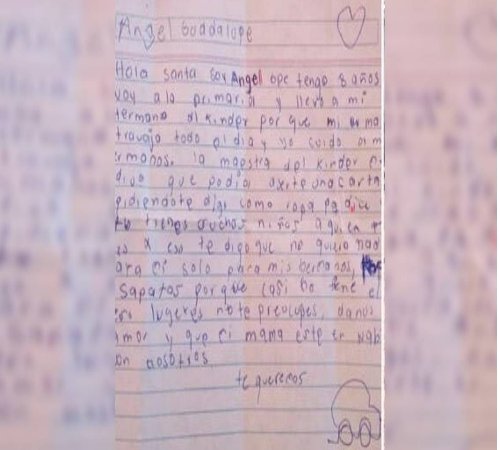 Angel Guadalupe
Hola santa soy Angel ope tengo 8 años
voy a la primaria y llevo a mi
ermano al kinder por que mi mama
travaja todo el dia y yo cuido a mi
ermanos. la maestra del kinder
dijo que podia aserte una carta
pidiendote algo como ropa
tu tienes muchos niños a quien
x eso te digo que no quiero nad
ara mi solo para mis hermanos,
sapatos porque casi no tene
lugetes no te preocupes, danos
amor y que mi mama este
on nosotros
te queremos